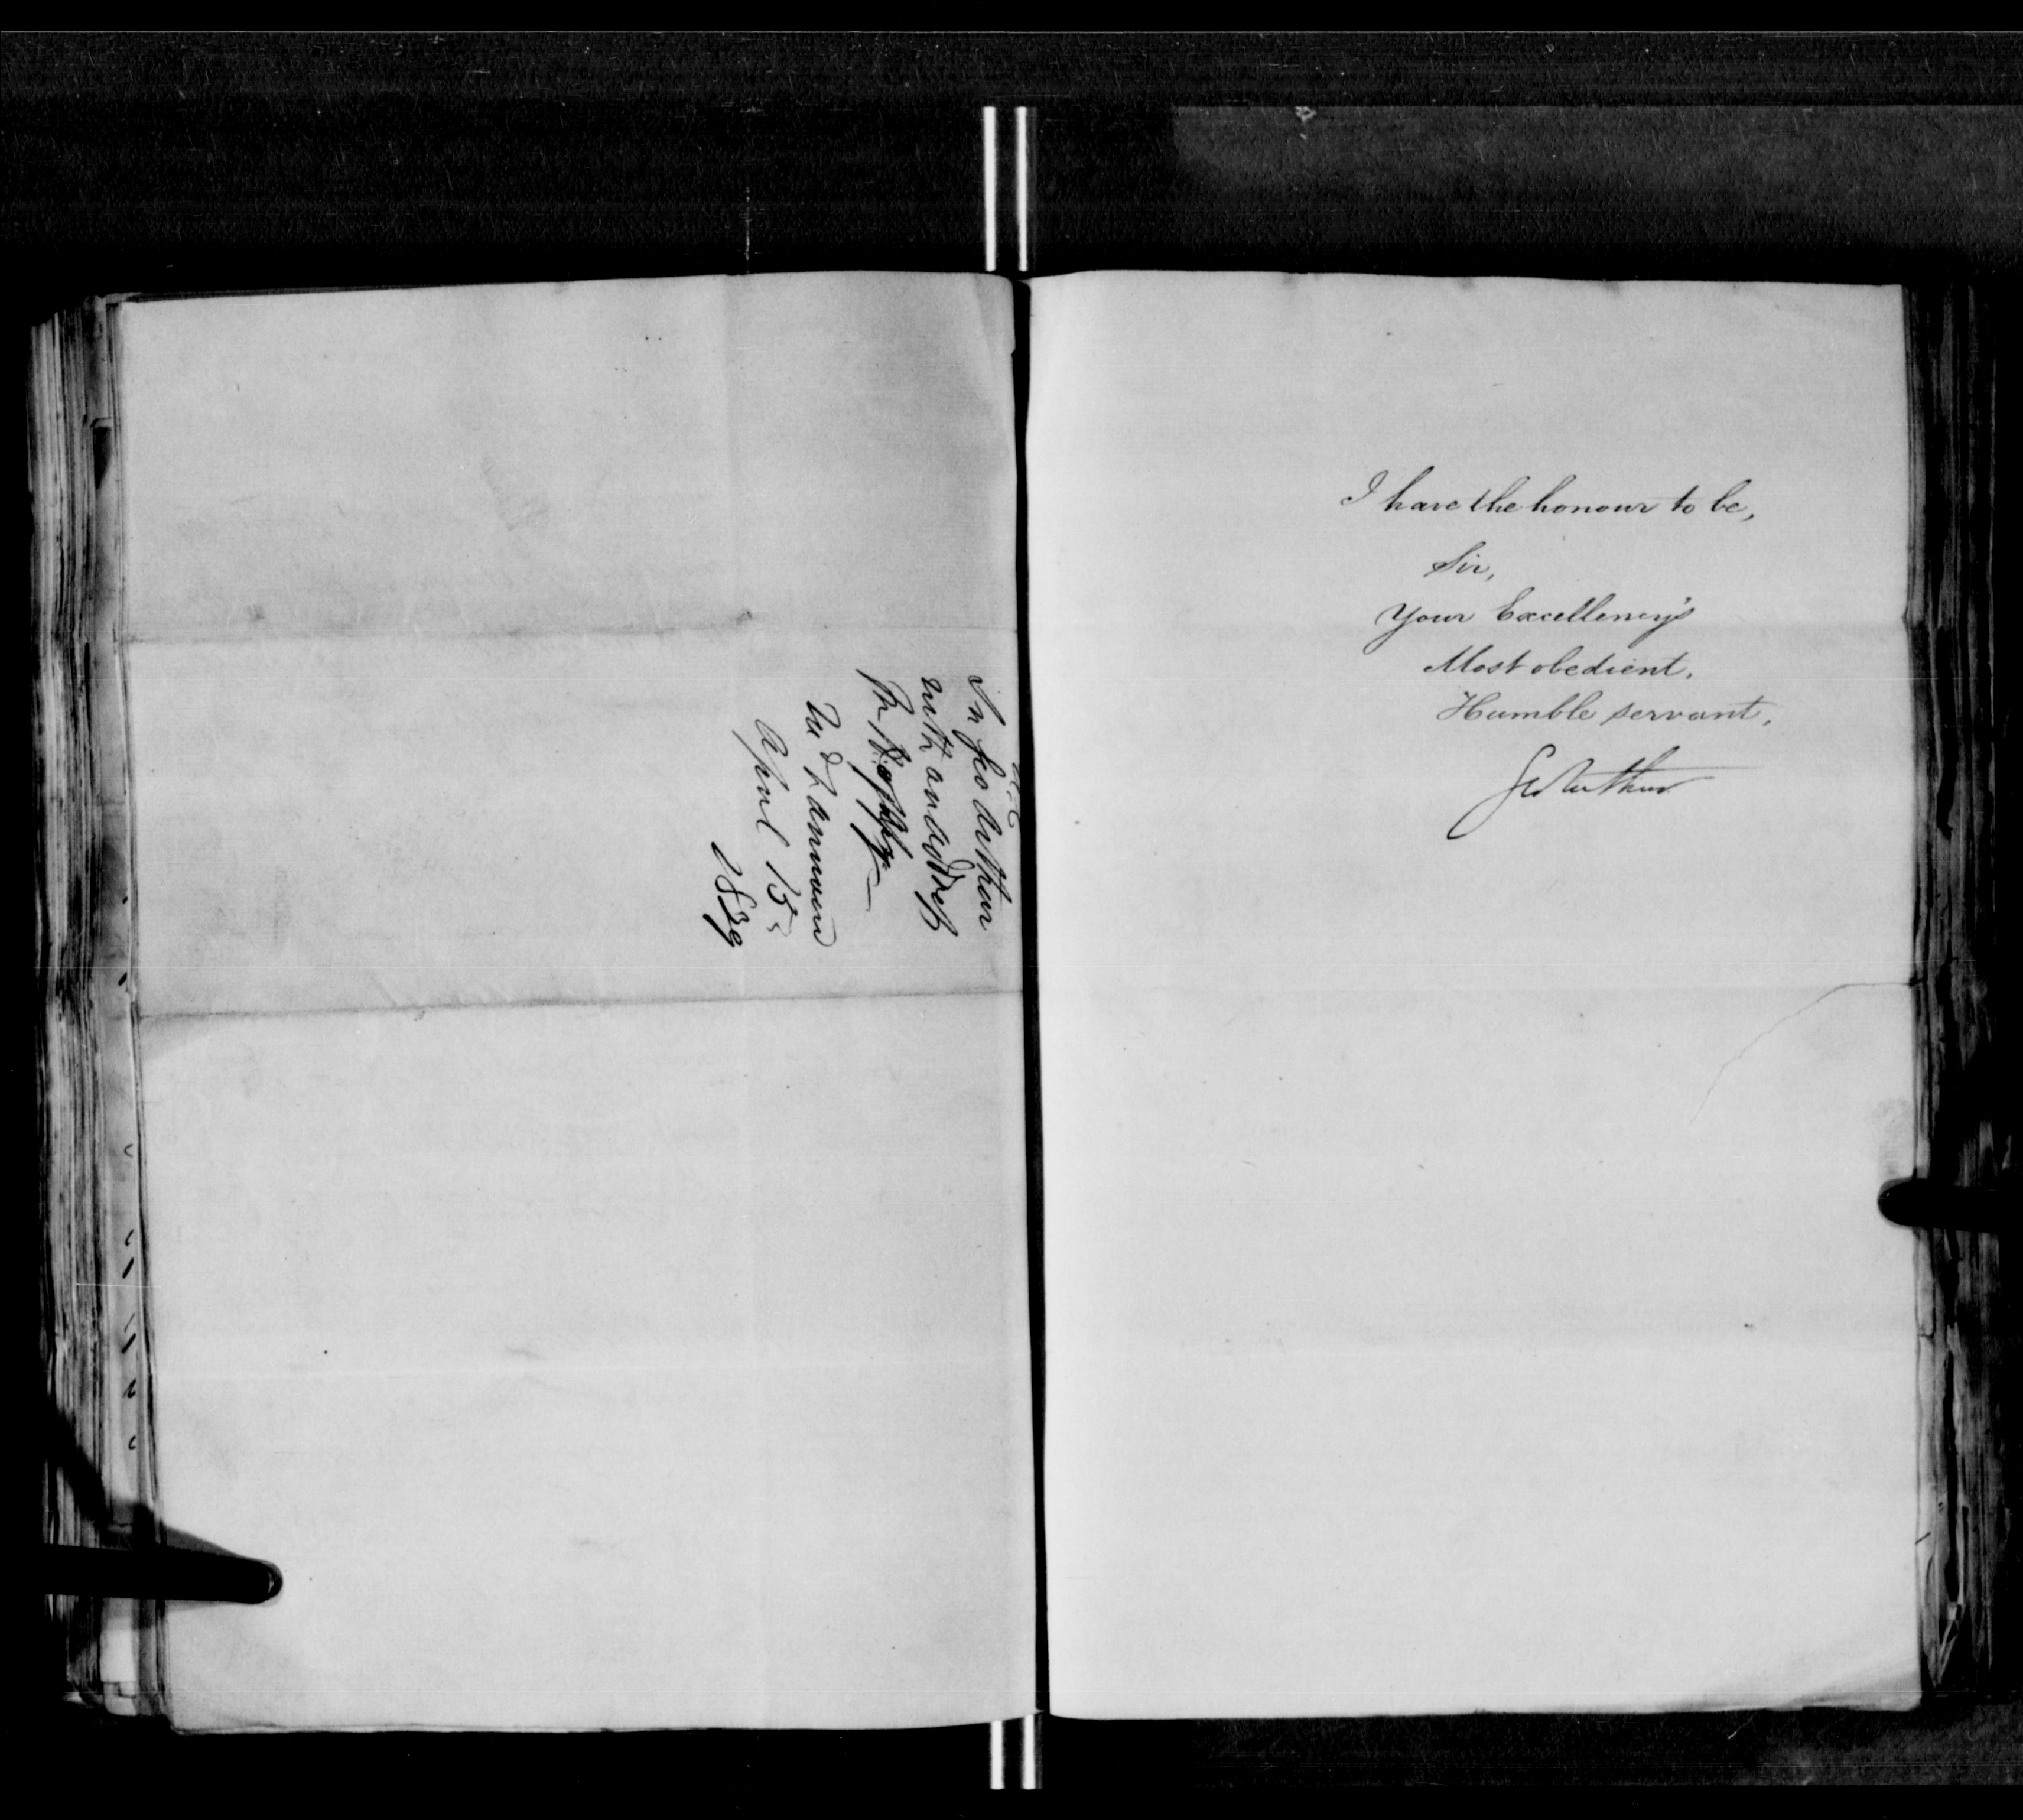 Sir Geo Arthur
with an address
April 15
1839
I have the honour to be,
Sir,
Your Excellency's
Most obedient,
Humble servant,
Geo Arthur